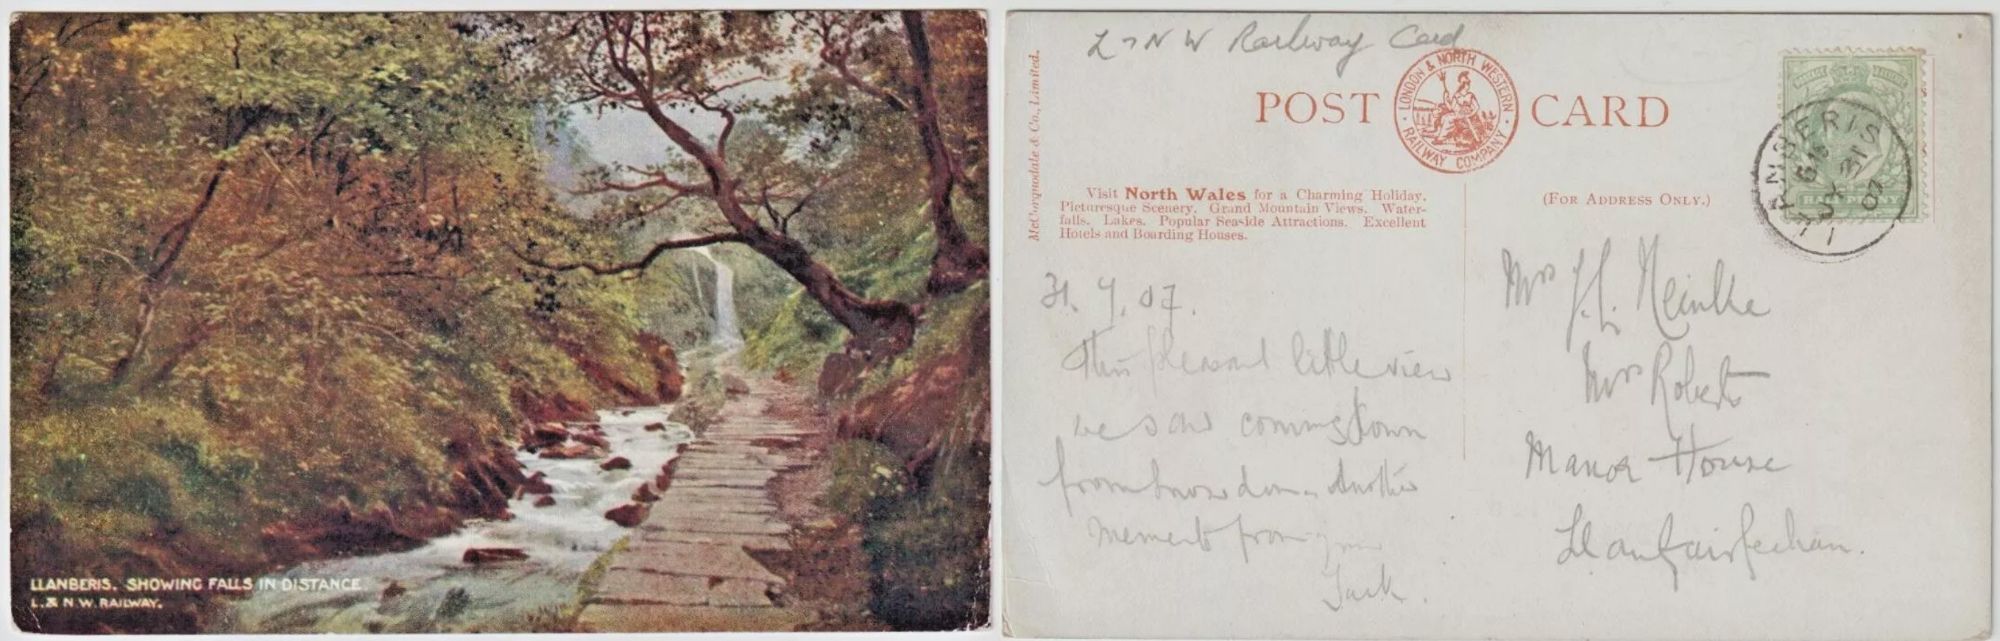 LLANBERIS. SHOWING FALLS IN DISTANCE.
L. & N. W. RAILWAY.
L & N W Railway Card
POST CARD
LONDON & NORTH WESTERN RAILWAY COMPANY
McCorquodale & Co., Limited.
Visit North Wales for a Charming Holiday.
Picturesque Scenery. Grand Mountain Views. Water-
falls. Lakes. Popular Sea-side Attractions. Excellent
Hotels and Boarding Houses.
(FOR ADDRESS ONLY.)
HALFPENNY
31. 7. 07.
This pleasant little view
we saw coming down
from Snowdon. Another
memento from your
Jack.
Mrs J. L.
Mrs Roberts
Manor House
Llanfairfechan.